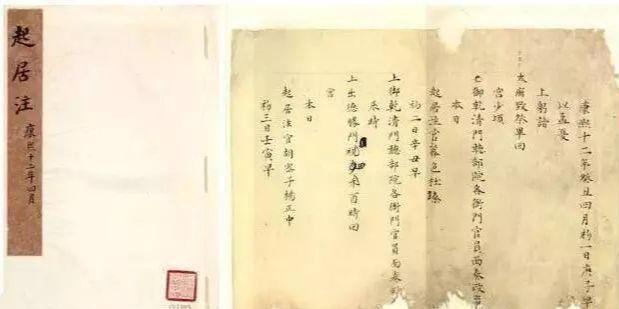 起居注
康熙十二年四月
康熙十二年癸丑四月初一日庚子早
以孟夏
上躬詣
太廟致祭畢回
宮少頃
上御乾清門聽部院各衙門官員面奏政事
本日
起居注官莫色杜臻
初二日辛丑早
上御乾清門聽部院各衙門官員面奏政
未時
上出德勝門觀禾酉時回
宮
本日
起居注官胡密子楊正中
初三日壬寅早